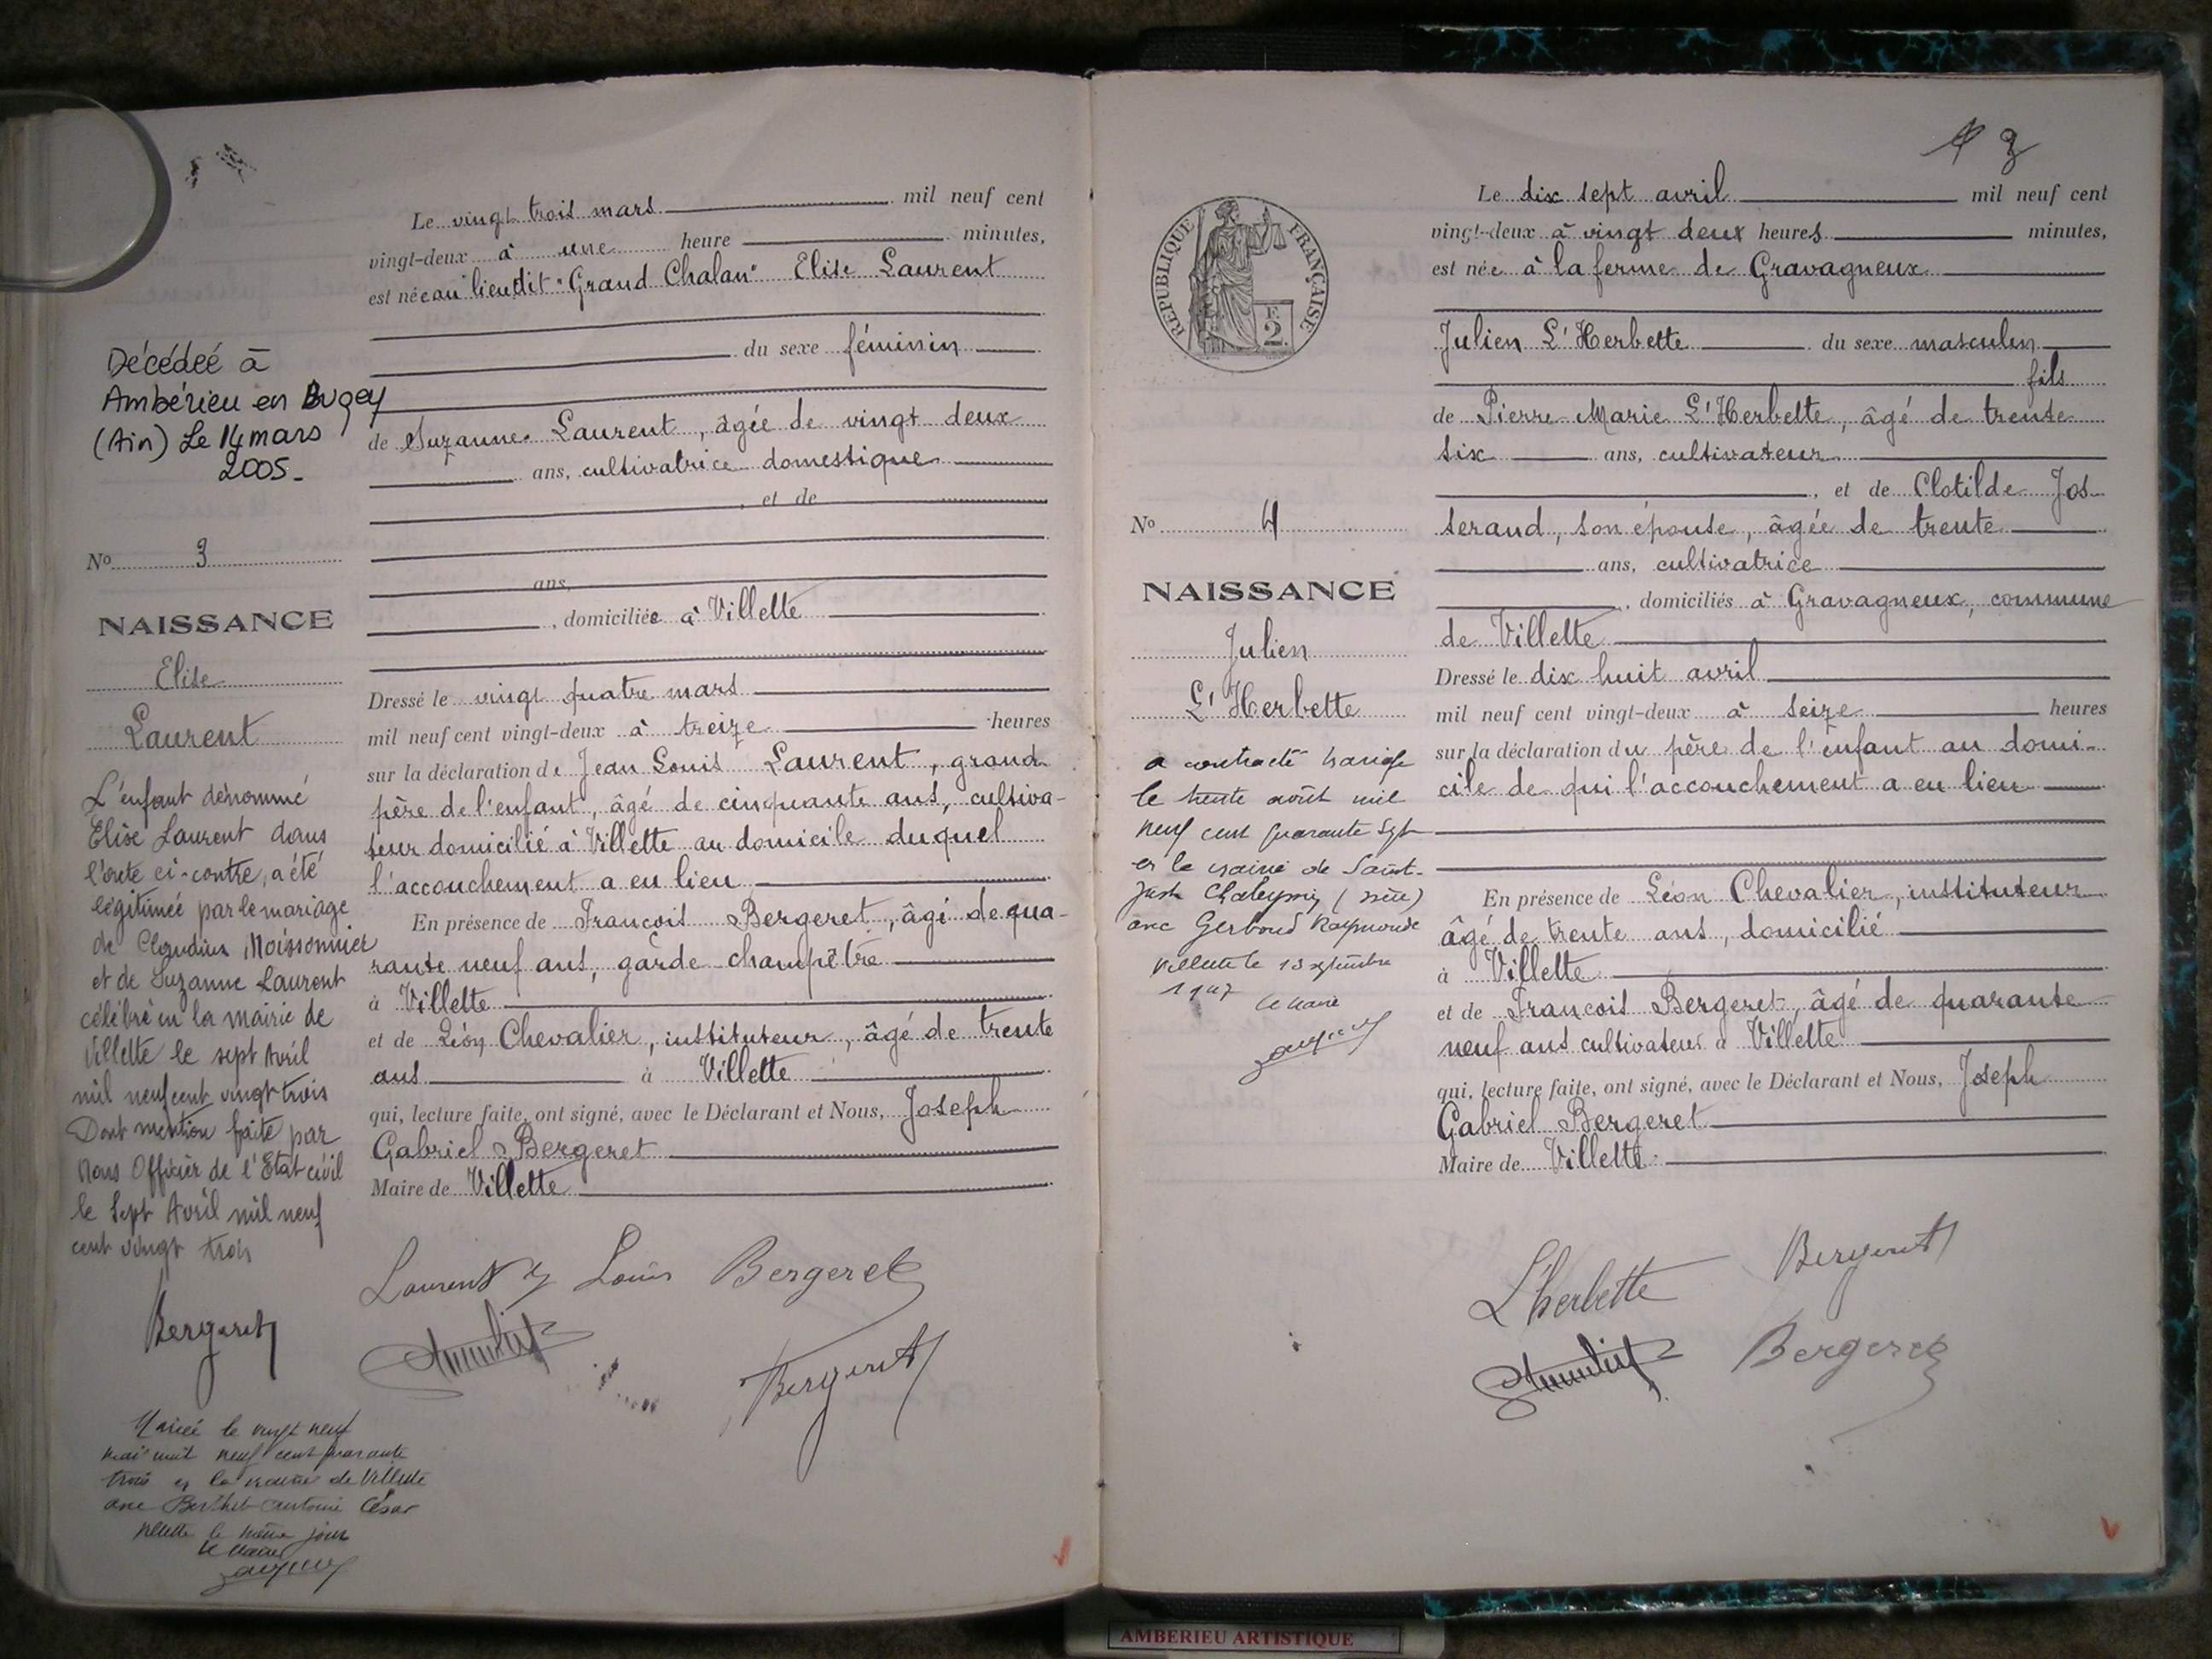 Le vingt trois mars mil neuf cent
vingt-deux à une heure minutes,
est née au lieu dit "Grand Chalan" Elise Laurent
du sexe féminin
de Suzanne Laurent, âgée de vingt deux
ans, cultivatrice domestique
, et de
ans,
, domiciliée à Villette
Dressé le vingt quatre mars
mil neuf cent vingt-deux à treize heures
sur la déclaration de Jean Louis Laurent, grand
père de l'enfant, âgé de cinquante ans, cultiva-
teur domicilié à Villette au domicile duquel
l'accouchement a eu lieu
En présence de François Bergeret, âgé de qua-
rante neuf ans, garde-champêtre
à Villette
et de Léon Chevalier, instituteur, âgé de trente
ans à Villette
qui, lecture faite, ont signé, avec le Déclarant et Nous, Joseph
Gabriel Bergeret
Maire de Villette
Laurent Louis Bergeret
Bergeret
Décédée à
Ambérieu en Bugey
(Ain) Le 14 mars
2005.
No 3
NAISSANCE
Elise
Laurent
L'enfant dénommé
Elise Laurent dans
l'acte ci-contre, a été
légitimée par le mariage
de Claudius Moissonnier
et de Suzanne Laurent
célébré en la mairie de
Villette le sept Avril
mil neuf cent vingt trois
Dont mention faite par
Nous Officier de l'Etat civil
le Sept Avril mil neuf
cent vingt trois
Bergeret
Mariée le vingt neuf
mai mil neuf cent quarante
trois en la mairie de Villette
avec Berthet Antoine César
Villette le même jour
Le Maire
3
RÉPUBLIQUE FRANÇAISE
F.
2.
Le dix sept avril mil neuf cent
vingt-deux à vingt deux heures minutes,
est née à la ferme de Gravagneux
Julien L'Herbette du sexe masculin
fils
de Pierre Marie L'Herbette, âgé de trente
six ans, cultivateur
, et de Clotilde Jos-
serand, son épouse, âgée de trente
ans, cultivatrice
, domiciliés à Gravagneux, commune
de Villette
Dressé le dix huit avril
mil neuf cent vingt-deux à seize heures
sur la déclaration du père de l'enfant au domi-
cile de qui l'accouchement a eu lieu
En présence de Léon Chevalier, instituteur
âgé de trente ans, domicilié
à Villette
et de François Bergeret, âgé de quarante
neuf ans cultivateur à Villette
qui, lecture faite, ont signé, avec le Déclarant et Nous, Joseph
Gabriel Bergeret
Maire de Villette
L'herbette Bergeret
Bergeret
No 4
NAISSANCE
Julien
L'Herbette
a contracté mariage
le trente août mil
neuf cent quarante sept
en la mairie de Saint-
Just Chaleyssin (Isère)
avec Gerboud Raymonde
Villette le 13 septembre
1947 Le Maire
AMBERIEU ARTISTIQUE